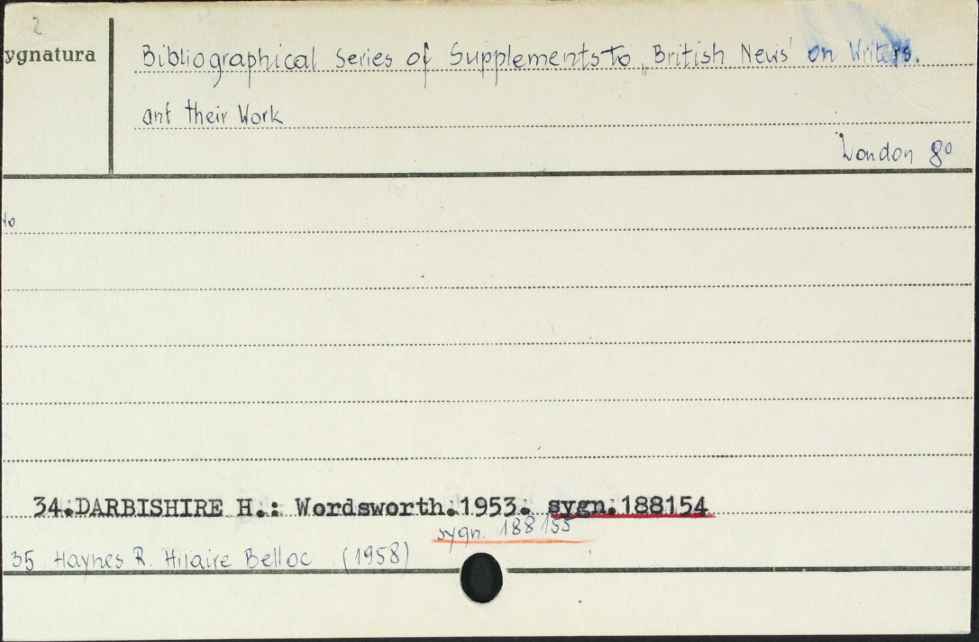 2
ygnatura
Bibliographical Series of Supplements to „British News' on Writers.
ant their Work
London 8°
to
34.DARBISHIRE H.: Wordsworth.1953. sygn.188154
sygn. 188155
35 Haynes R. Hilaire Belloc (1958)